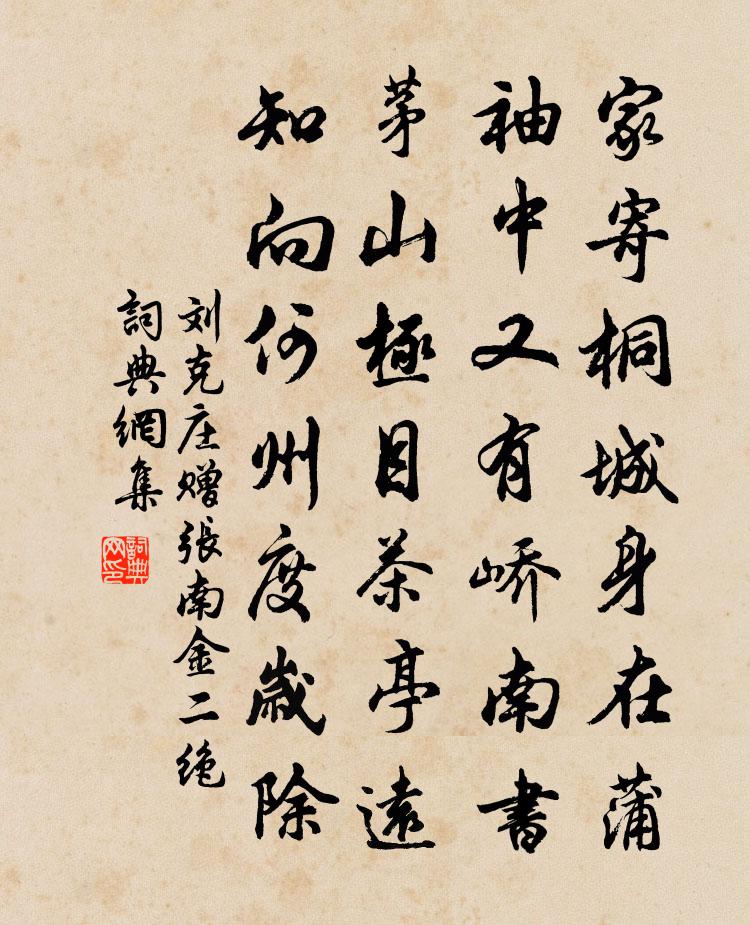 家寄桐城身在蒲
袖中又有峤南書
茅山極目茶亭遠
知向何州度歲除
刘克庄赠張南金二绝
詞典網集
詞典网印